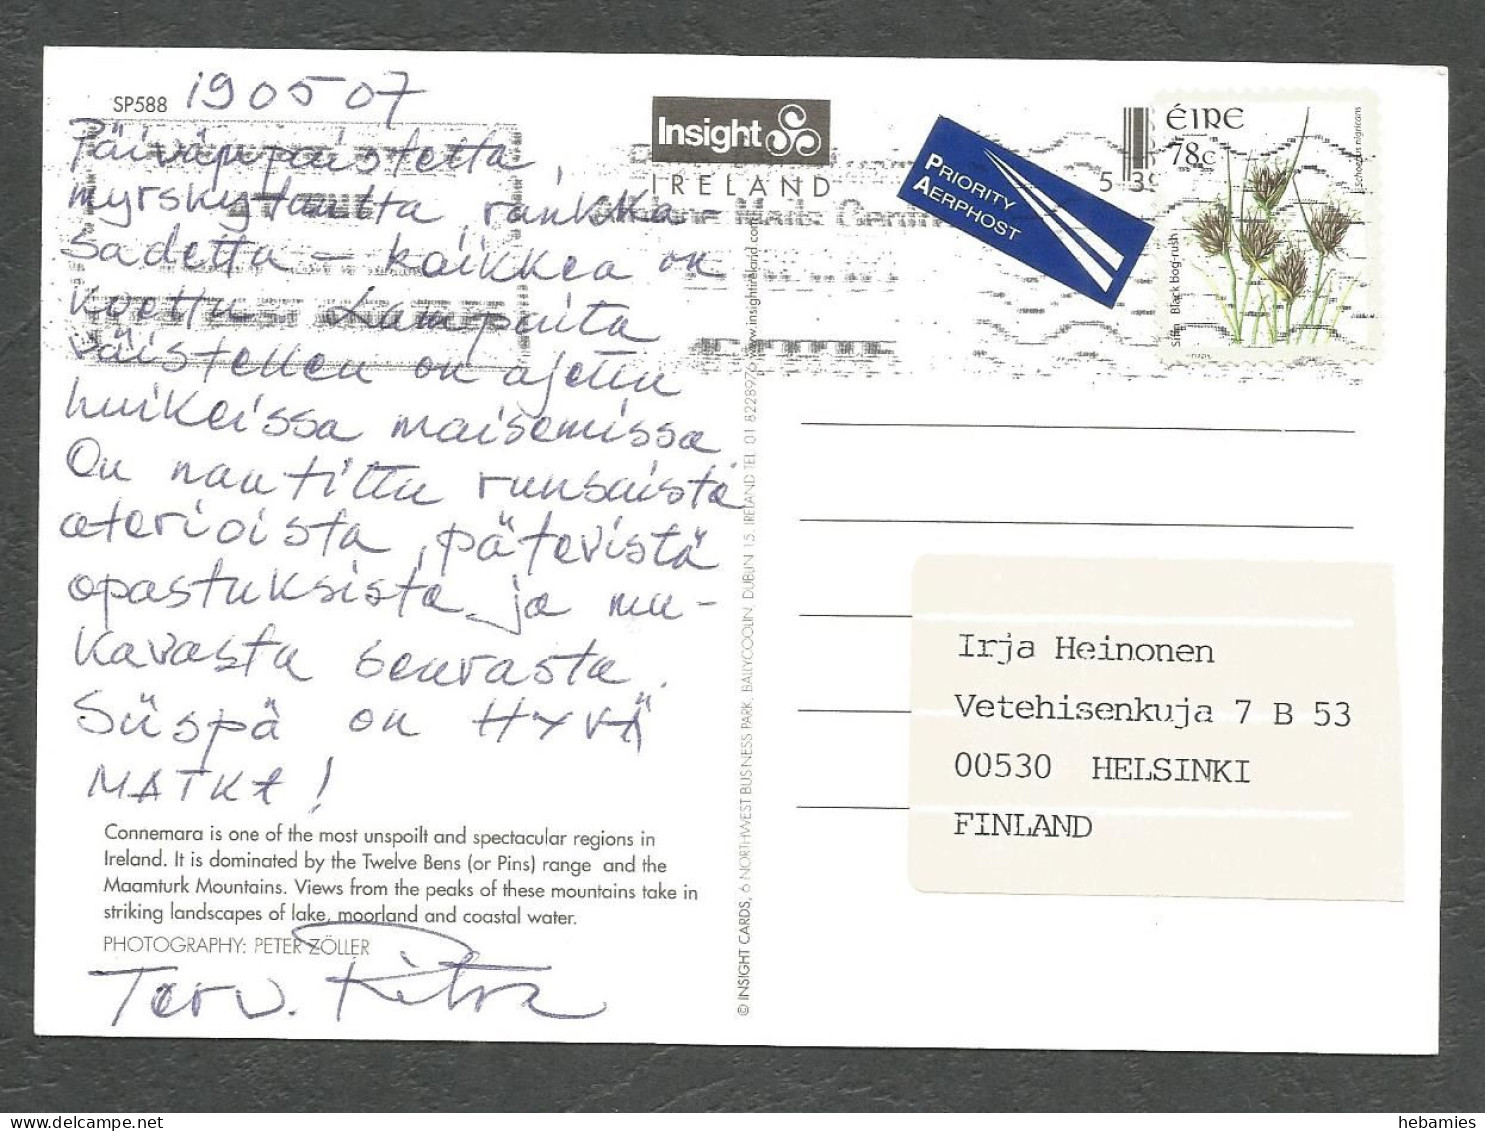 SP588
190507
Päivänpaistetta,
myrskytuulta, rankka-
sadetta – kaikkea on
koettu. Lampaita
väistellen on ajettu
huikeissa maisemissa
On nautittu runsaista
aterioista, pätevistä
opastuksista ja mu-
kavasta seurasta.
Siispä on HYVÄ
MATKA!
Connemara is one of the most unspoilt and spectacular regions in
Ireland. It is dominated by the Twelve Bens (or Pins) range and the
Maamturk Mountains. Views from the peaks of these mountains take in
striking landscapes of lake, moorland and coastal water.
PHOTOGRAPHY: PETER ZÖLLER
Terv.
Insight
IRELAND
© INSIGHT CARDS, 6 NORTHWEST BUSINESS PARK, BALLYCOOLIN, DUBLIN 15, IRELAND TEL. 01 822897 www.insightireland.com
PRIORITY
AERPHOST
5 39
ÉIRE
78c
Schoenus nigricans
Sifín Black bog-rush
Irja Heinonen
Vetehisenkuja 7 B 53
00530 HELSINKI
FINLAND
hebamies